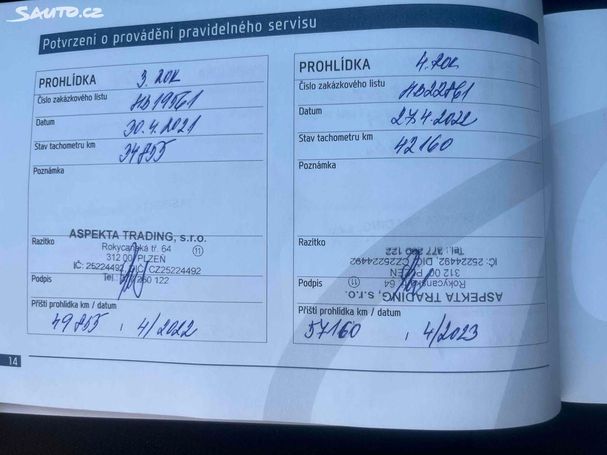 SAUTO.CZ
Potvrzení o provádění pravidelného servisu
PROHLÍDKA 3. ROK
Číslo zakázkového listu
HD19561
Datum
30.4.2021
Stav tachometru km
34855
Poznámka
Razítko
ASPEKTA TRADING, s.r.o.
Rokycanská tř. 64
312 00 PLZEŇ 11
IČ: 25224492, DIČ: CZ25224492
Podpis
Tel.: 377 260 122
Příští prohlídka km / datum
49855 , 4/2022
PROHLÍDKA 4. ROK
Číslo zakázkového listu
HD22861
Datum
27.4.2022
Stav tachometru km
42160
Poznámka
Razítko
Tel.: 377 260 122
IČ: 25224492, DIČ: CZ25224492
312 00 PLZEŇ 11
Podpis
Rokycanská tř. 64
ASPEKTA TRADING, s.r.o.
Příští prohlídka km / datum
57160 , 4/2023
14